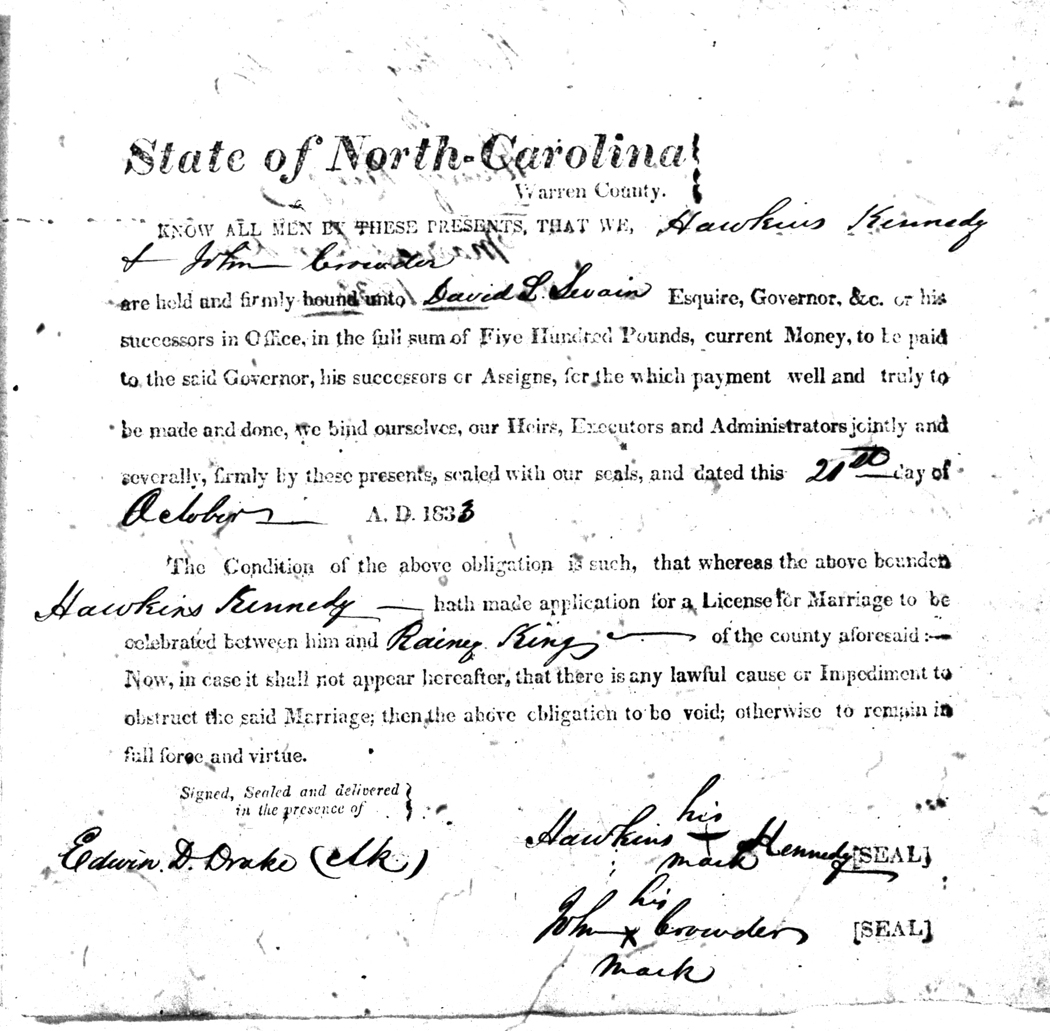 State of North-Carolina
Warren County.
KNOW ALL MEN BY THESE PRESENTS, THAT WE, Hawkins Kennedy
& John Crowder
are held and firmly bound unto David L. Swain Esquire, Governor, &c. or his
successors in Office, in the full sum of Five Hundred Pounds, current Money, to be paid
to the said Governor, his successors or Assigns, for the which payment well and truly to
be made and done, we bind ourselves, our Heirs, Executors and Administrators jointly and
severally, firmly by these presents, sealed with our seals, and dated this day of
October A. D. 1833
The Condition of the above obligation is such, that whereas the above bounden
Hawkins Kennedy hath made application for a License for Marriage to be
celebrated between him and Rainey King of the county aforesaid:—
Now, in case it shall not appear hereafter, that there is any lawful cause or Impediment to
obstruct the said Marriage; then the above obligation to be void; otherwise to remain in
full force and virtue.
Signed, Sealed and delivered
in the presence of
Edwin. D. Drake (clk)
his
Hawkins Kennedy [SEAL]
mark
his
John X Crowder [SEAL]
mark